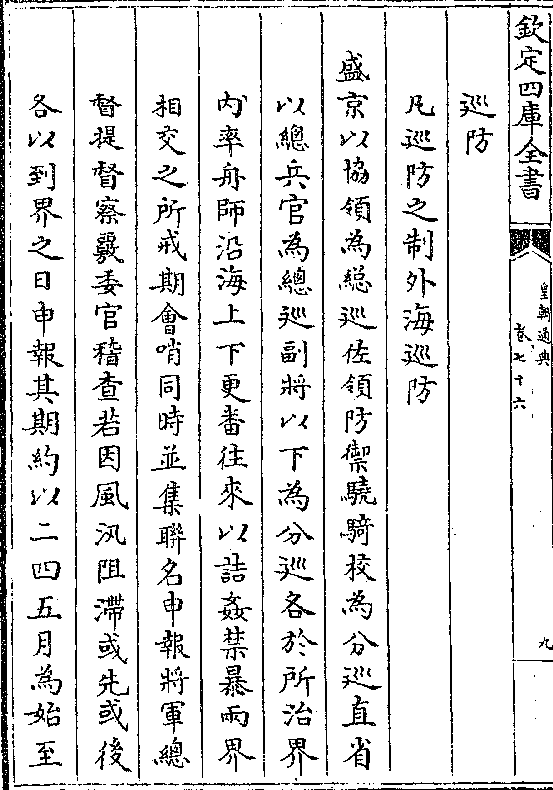 欽定四庫全書
皇朝通典
卷七十六
九
巡防
凡巡防之制外海巡防
盛京以協領為總巡佐領防禦驍騎校為分巡直省
以總兵官為總巡副將以下為分巡各於所治界
内率舟師沿海上下更番往來以詰姦禁暴兩界
相交之所戒期會哨同時並集聯名申報將軍總
督提督察覈委官稽查若因風汛阻滯或先或後
各以到界之日申報其期約以二四五月為始至